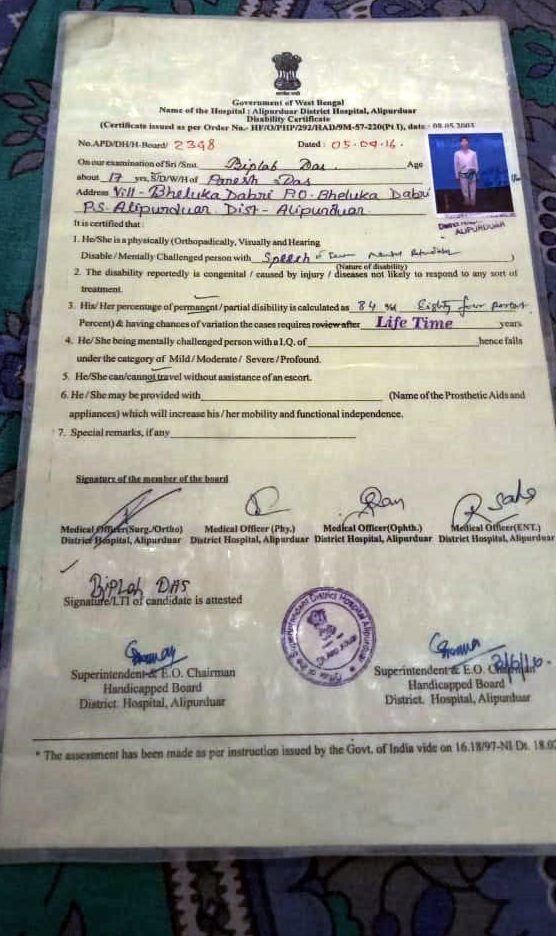 Government of West Bengal
Name of the Hospital : Alipurduar District Hospital, Alipurduar
Disability Certificate
(Certificate issued as per Order No.- HF/O/PHP/292/HAD/9M-57-220(Pt I), date : 08.05.2003
No.APD/DH/H-Board/ 2348 Dated : 05-04-16.
On our examination of Sri/Smt. Biplab Das Age
about 17 yrs, S/D/W/H of Paresh Das
Address Vill - Bheluka Dabri P.O. Bheluka Dabri
P.S. Alipurduar. Dist - Alipurduar.
ALIPURDUAR
It is certified that :
1. He/She is a physically (Orthopadically, Visually and Hearing
Disable / Mentally Challenged person with Speech Mental )
(Nature of disability)
2. The disability reportedly is congenital / caused by injury / diseases not likely to respond to any sort of
treatment.
3. His/Her percentage of permanent / partial disibility is calculated as 84 Eighty four
Percent) & having chances of variation the cases requires review after Life Time years
4. He/ She being mentally challenged person with a I.Q. of hence falls
under the category of Mild / Moderate / Severe / Profound.
5. He/She can/cannot travel without assistance of an escort.
6. He / She may be provided with (Name of the Prosthetic Aids and
appliances) which will increase his / her mobility and functional independence.
7. Special remarks, if any
Signature of the member of the board
Medical Officer(Surg./Ortho) Medical Officer (Phy.) Medical Officer(Ophth.) Medical Officer(ENT.)
District Hospital, Alipurduar District Hospital, Alipurduar District Hospital, Alipurduar District Hospital, Alipurduar
BIPLab DAS
Signature/LTI of candidate is attested
Office of the Superintendent District Hospital Alipurduar
Superintendent & E.O. Chairman Superintendent & E.O. Chairman
Handicapped Board Handicapped Board
District Hospital, Alipurduar District. Hospital, Alipurduar
* The assessment has been made as per instruction issued by the Govt. of India vide on 16.18/97-NI Dt. 18.02